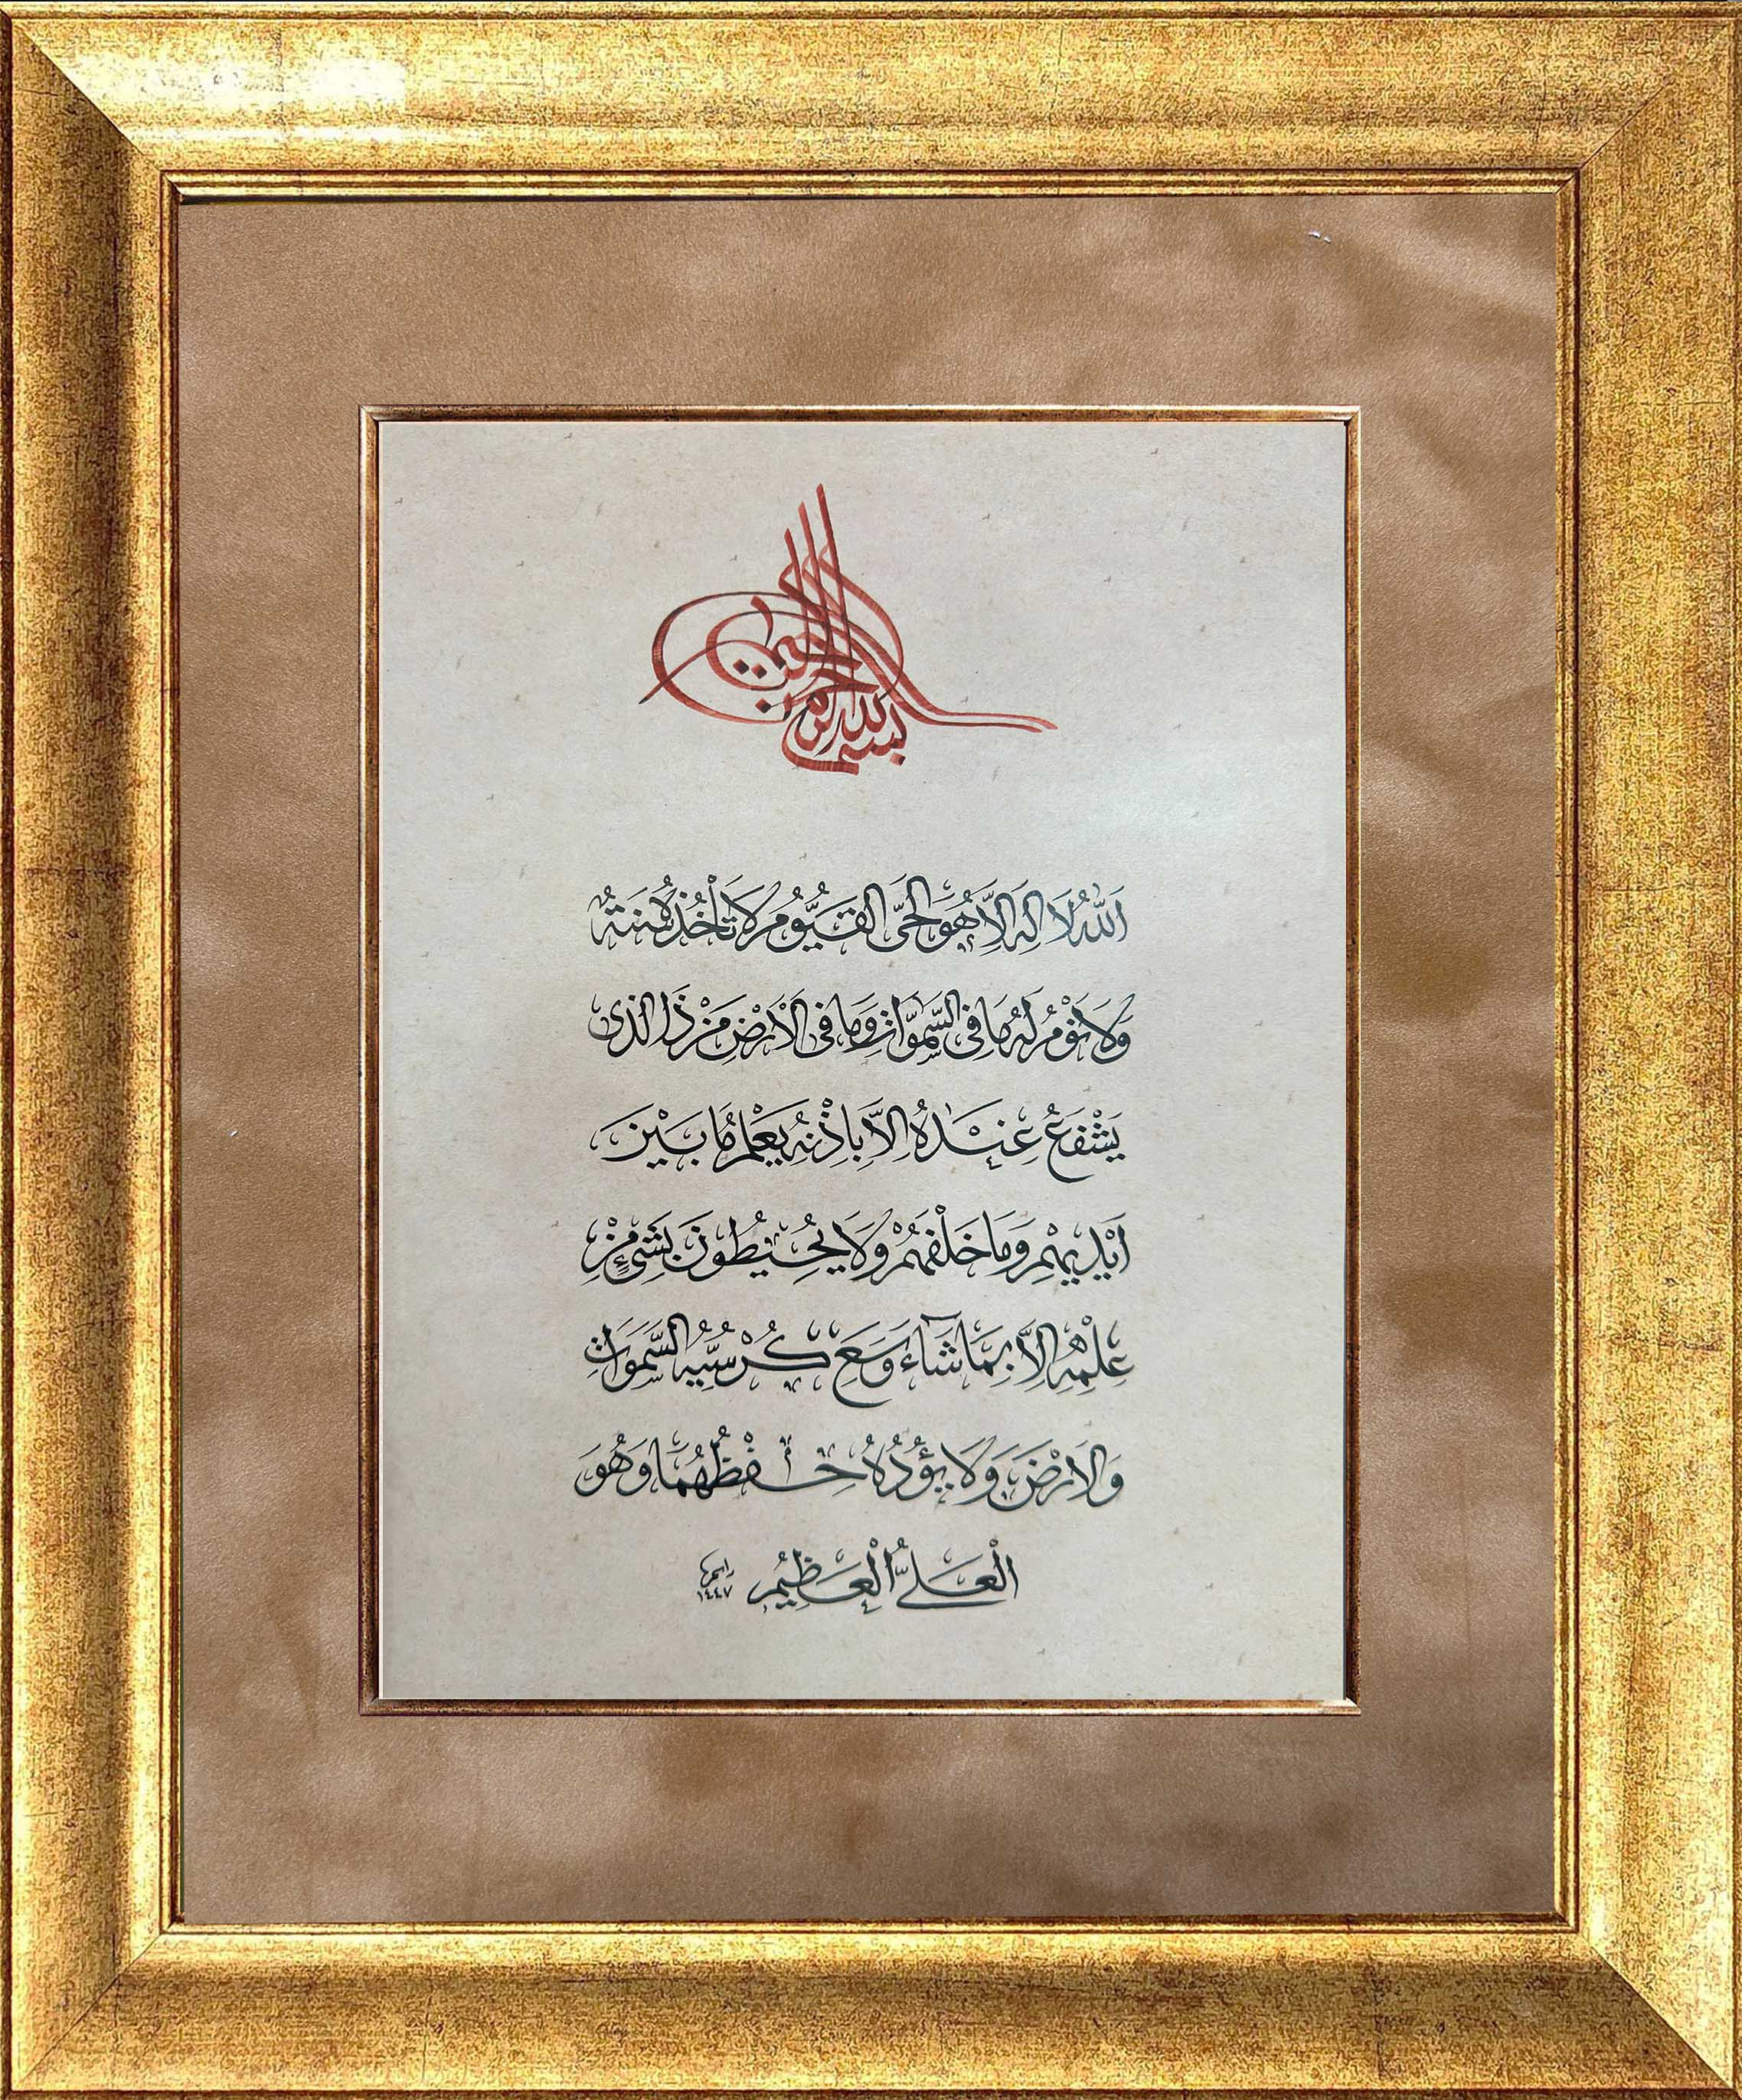 بسم الله الرحمن الرحيم
اَللّٰهُ لَا اِلٰهَ اِلَّا هُوَ الْحَىُّ الْقَيُّومُ لَا تَأْخُذُهُ سِنَةٌ
وَلَا نَوْمٌ لَهُ مَا فِى السَّمٰوَاتِ وَمَا فِى الْاَرْضِ مَنْ ذَا الَّذِى
يَشْفَعُ عِنْدَهُ اِلَّا بِاِذْنِهِ يَعْلَمُ مَا بَيْنَ
اَيْدِيهِمْ وَمَا خَلْفَهُمْ وَلَا يُحِيطُونَ بِشَىْءٍ مِنْ
عِلْمِهِ اِلَّا بِمَا شَاءَ وَسِعَ كُرْسِيُّهُ السَّمٰوَاتِ
وَالْاَرْضَ وَلَا يَؤُدُهُ حِفْظُهُمَا وَهُوَ
الْعَلِىُّ الْعَظِيمُ
١٤٤٧